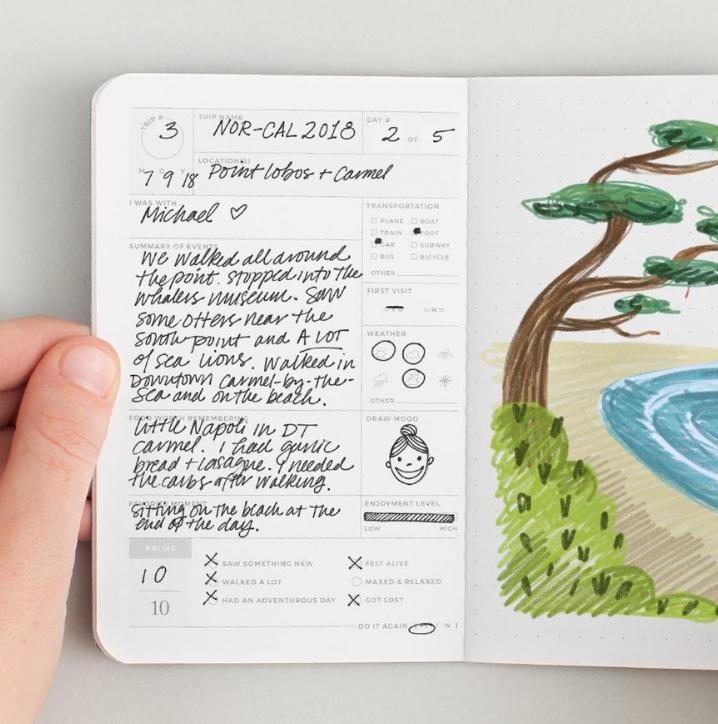 TRIP #
3
TRIP NAME
NOR-CAL 2018
DAY #
2 OF 5
M D Y
7 9 '18
LOCATION(S)
Point lobos + Carmel
I WAS WITH
Michael ♡
TRANSPORTATION
PLANE BOAT
TRAIN FOOT
CAR SUBWAY
BUS BICYCLE
OTHER
SUMMARY OF EVENTS
We walked all around
the point. Stopped into the
whalers museum. Saw
some otters near the
South point and A LOT
of sea lions. Walked in
Downtown Carmel-by-the-
Sea and on the beach.
FIRST VISIT
WEATHER
OTHER
FOOD WORTH REMEMBERING
Little Napoli in DT
Carmel. I had garlic
bread + lasagne. I needed
the carbs after walking.
DRAW MOOD
FAVORITE MOMENT
Sitting on the beach at the
end of the day.
ENJOYMENT LEVEL
LOW HIGH
RATING
10
10
SAW SOMETHING NEW
WALKED A LOT
HAD AN ADVENTUROUS DAY
FELT ALIVE
MAXED & RELAXED
GOT LOST
DO IT AGAIN